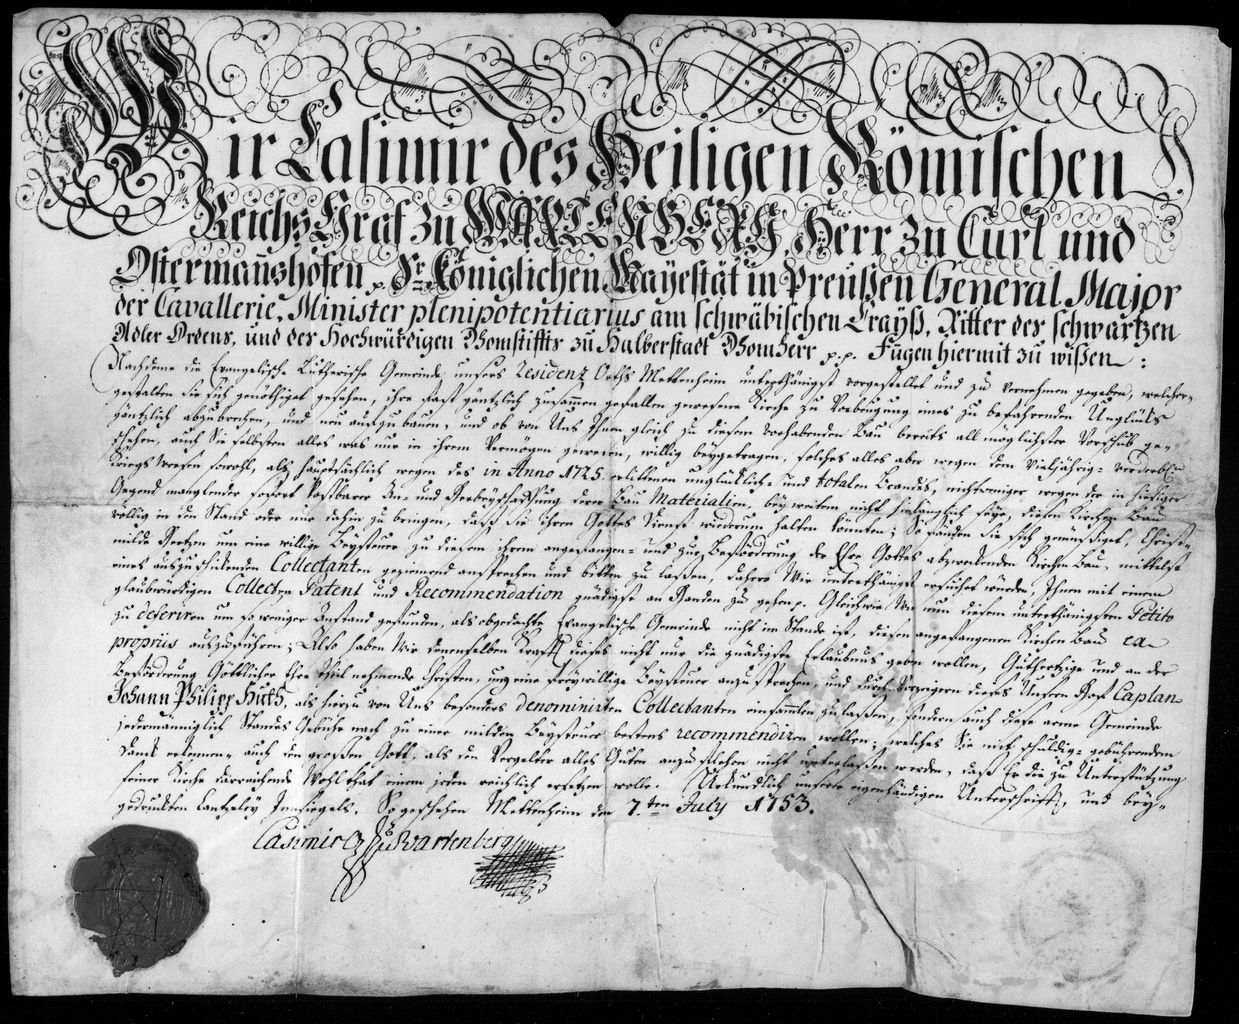 Wir Casimir des Heiligen Römischen
Reichs Graf zu WARTENBERG, Herr zu Curl und
Ostermañshofen p. Sr. Königlichen Mayestät in Preußen General Major
der Cavallerie, Minister plenipotentiarius am schwäbischen Crayß, Ritter der schwartzen
Adler Ordens, und des Hochwürdigen Dhomstiffts zu Halberstadt Dhomherr p. p. Fügen hiermit zu wißen:
Nachdeme die Evangelisch Lutherische Gemeinde unsers Residenz Orths Mettenheim unterthänigst vorgestellet und zu vernehmen gegeben, welcher-
gestalten sie sich genöthiget gesehen, ihre fast gäntzlich zusammen gefallen gewesene Kirche zu Vorbeugung eines zu befahrenden Unglücks
gäntzlich abzubrechen, und neu aufzubauen, und ob von Uns Ihnen gleich zu diesem vorhabenden Bau bereits all möglichster Vorschub ge-
schehen, auch Sie selbsten alles was nur in ihrem Vermögen gewesen, willig beygetragen, solches alles aber wegen dem vieljährig-verderbl.
Kriegs Wesen sowohl, als hauptsächlich wegen des in Anno 1725. erlittenen unglücklich- und totalen Brandes, nichtweniger wegen der in hiesiger
Gegend manglender sehr kostbarer An- und Herbeyschaffung derer Bau Materialien, bey weitem nicht hinlänglich seye, diesen Kirchen Bau
völlig in den Stand oder nur dahin zu bringen, daß Sie ihren Gottes Dienst wiederum halten könnten; So fänden Sie sich gemüßiget, Christ-
milde Hertzen um eine willige Beysteuer zu diesem ihrem angefangen- und zur Beförderung der Ehre Gottes abzweckenden Kirchen Bau, mittelst
eines auszuschickenden Collectanten geziemend ansprechen und bitten zu laßen, dahero Wir unterthänigst ersuchet würden, Ihnen mit einem
glaubwürdigen Collecten Patent und Recommendation gnädigst an Handen zu gehen p. Gleichwie Wir nun diesem unterthänigsten Petito
zu deferiren um so weniger Anstand gefunden, als obgedachte Evangelische Gemeinde nicht im Stande ist, diesen angefangenen Kirchen Bau ex
propriis auszuführen; Also haben Wir denenselben Krafft dieses nicht nur die gnädigste Erlaubnus geben wollen, Guthertzige und an der
Beförderung Göttlicher Ehre theil nehmende Christen, um eine freywillige Beysteuer anzusprechen, und durch Vorzeigern dieses Unsern Hof Caplan
Johann Philipp Huth, als hierzu von Uns besonders denominirten Collectanten einsammlen zu laßen, sondern auch diese arme Gemeinde
jedermänniglich Standes Gebühr nach zu einer milden Beysteuer bestens recommendiren wollen; welches Sie mit schuldig-gebührendem
Danck erkennen, auch den großen Gott, als den Vergelter alles Guten anzuflehen nicht unterlaßen werden, daß Er die zu Unterstützung
seiner Kirche darreichende Wohlthat einem jeden reichlich ersetzen wolle. Uhrkundlich unserer eigenhändigen Unterschrifft, und bey-
gedruckten Cantzeley Innsiegels. So geschehen Mettenheim den 7.ten July 1753.
Casimir G Zu Wartenberg